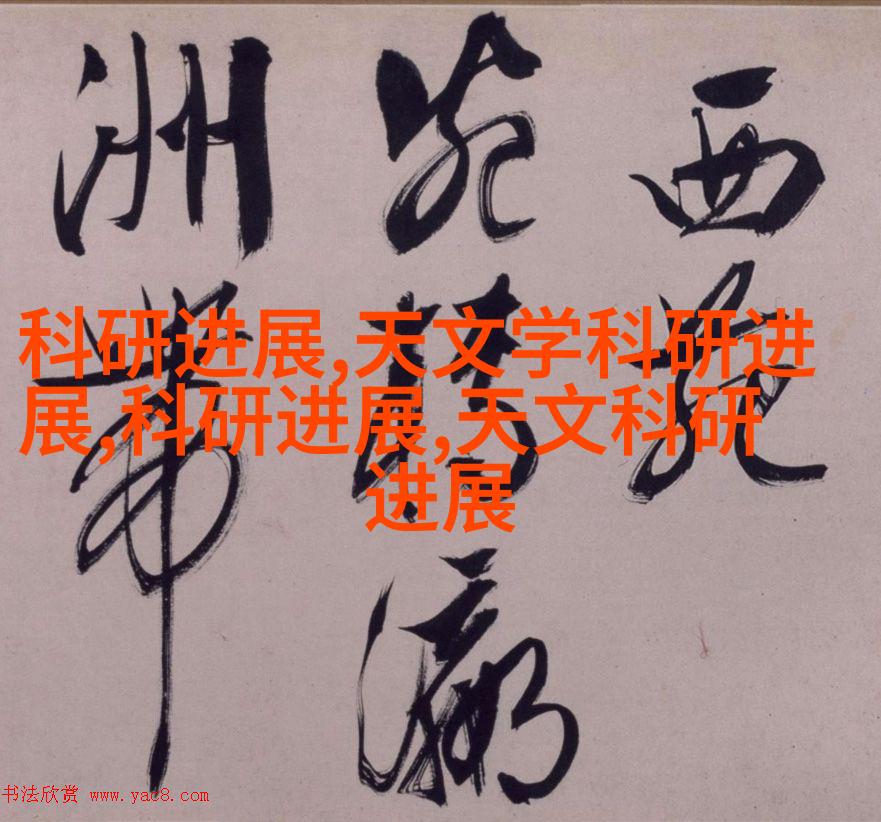 西苑
瀛
洲帶
科研进展,天文学科研进
展,科研进展,天文科研
进展
书法欣赏 www.yac8.com